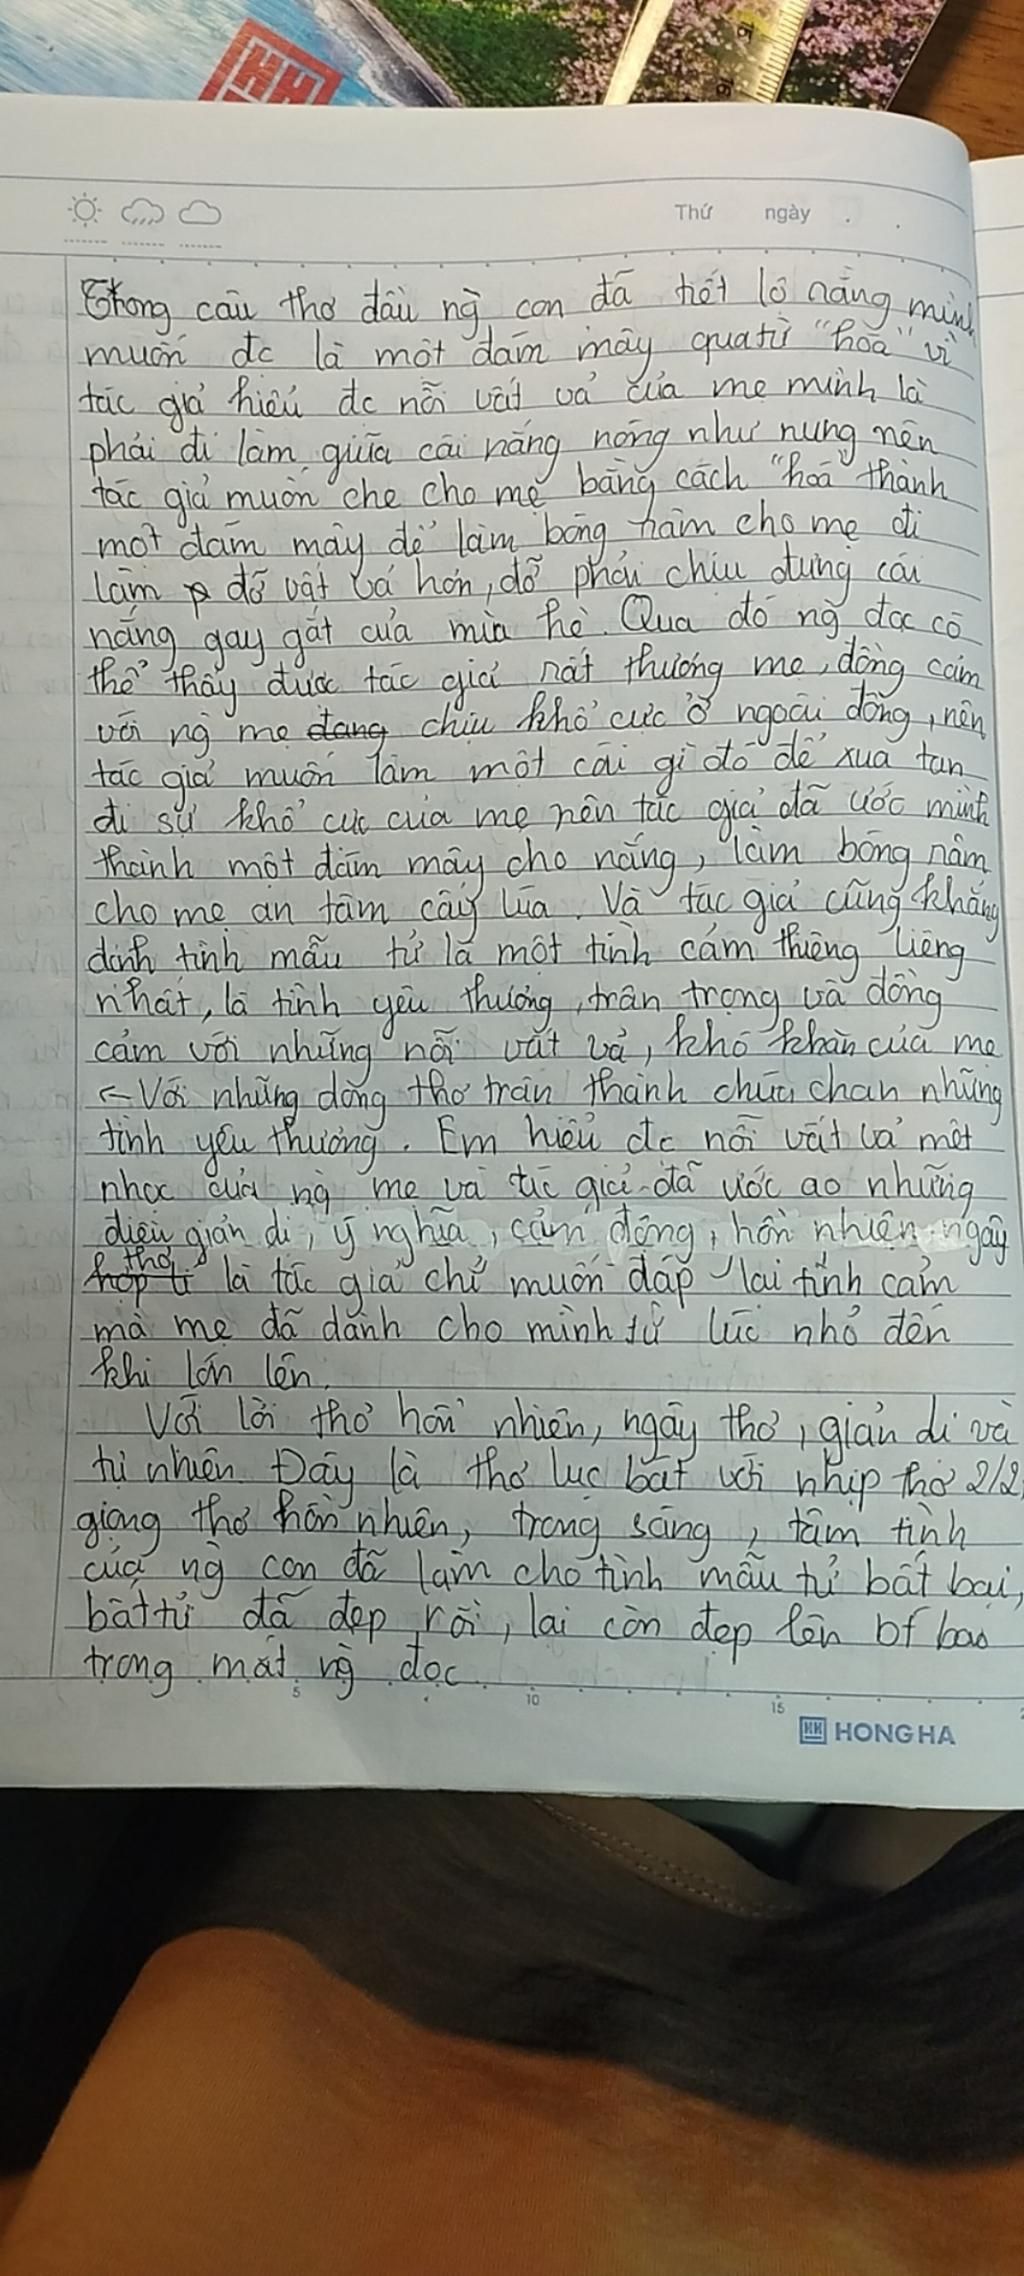 Thứ ngày
Trong câu thơ đầu ng̀ con đã tiết lộ rằng mình
muốn đc là một đám mây qua từ "hòa" vì
tác giả hiểu đc nỗi vất vả của mẹ mình là
phải đi làm giữa cái nắng nóng như nung nên
tác giả muốn che cho mẹ bằng cách "hoá" thành
một đám mây để làm bóng râm cho mẹ đi
làm đỡ vất vả hơn, đỡ phải chịu đựng cái
nắng gay gắt của mùa hè. Qua đó ng̀ đọc có
thể thấy được tác giả rất thương mẹ, đồng cảm
với ng̀ mẹ đang chịu khổ cực ở ngoài đồng, nên
tác giả muốn làm một cái gì đó để xua tan
đi sự khổ cực của mẹ nên tác giả đã ước mình
thành một đám mây cho nắng, làm bóng râm
cho mẹ an tâm cấy lúa. Và tác giả cũng khẳng
định tình mẫu tử là một tình cảm thiêng liêng
nhất, là tình yêu thương, trân trọng và đồng
cảm với những nỗi vất vả, khó khăn của mẹ
← Với những dòng thơ trân thành chứa chan những
tình yêu thương. Em hiểu đc nỗi vất vả mệt
nhọc của ng̀ mẹ và tác giả đã ước ao những
điều giản dị, ý nghĩa, cảm động, hồn nhiên ngây
thơ là tác giả chỉ muốn đáp lại tình cảm
mà mẹ đã dành cho mình từ lúc nhỏ đến
khi lớn lên.
Với lời thơ hồn nhiên, ngây thơ, giản dị và
tự nhiên. Đây là thơ lục bát với nhịp thơ 2/2,
giọng thơ hồn nhiên, trong sáng, tâm tình
của ng̀ con đã làm cho tình mẫu tử bất bại,
bất tử đã đẹp rồi, lại còn đẹp lên bt bao
trong mắt ng̀ đọc
5 10 15
HONG HA